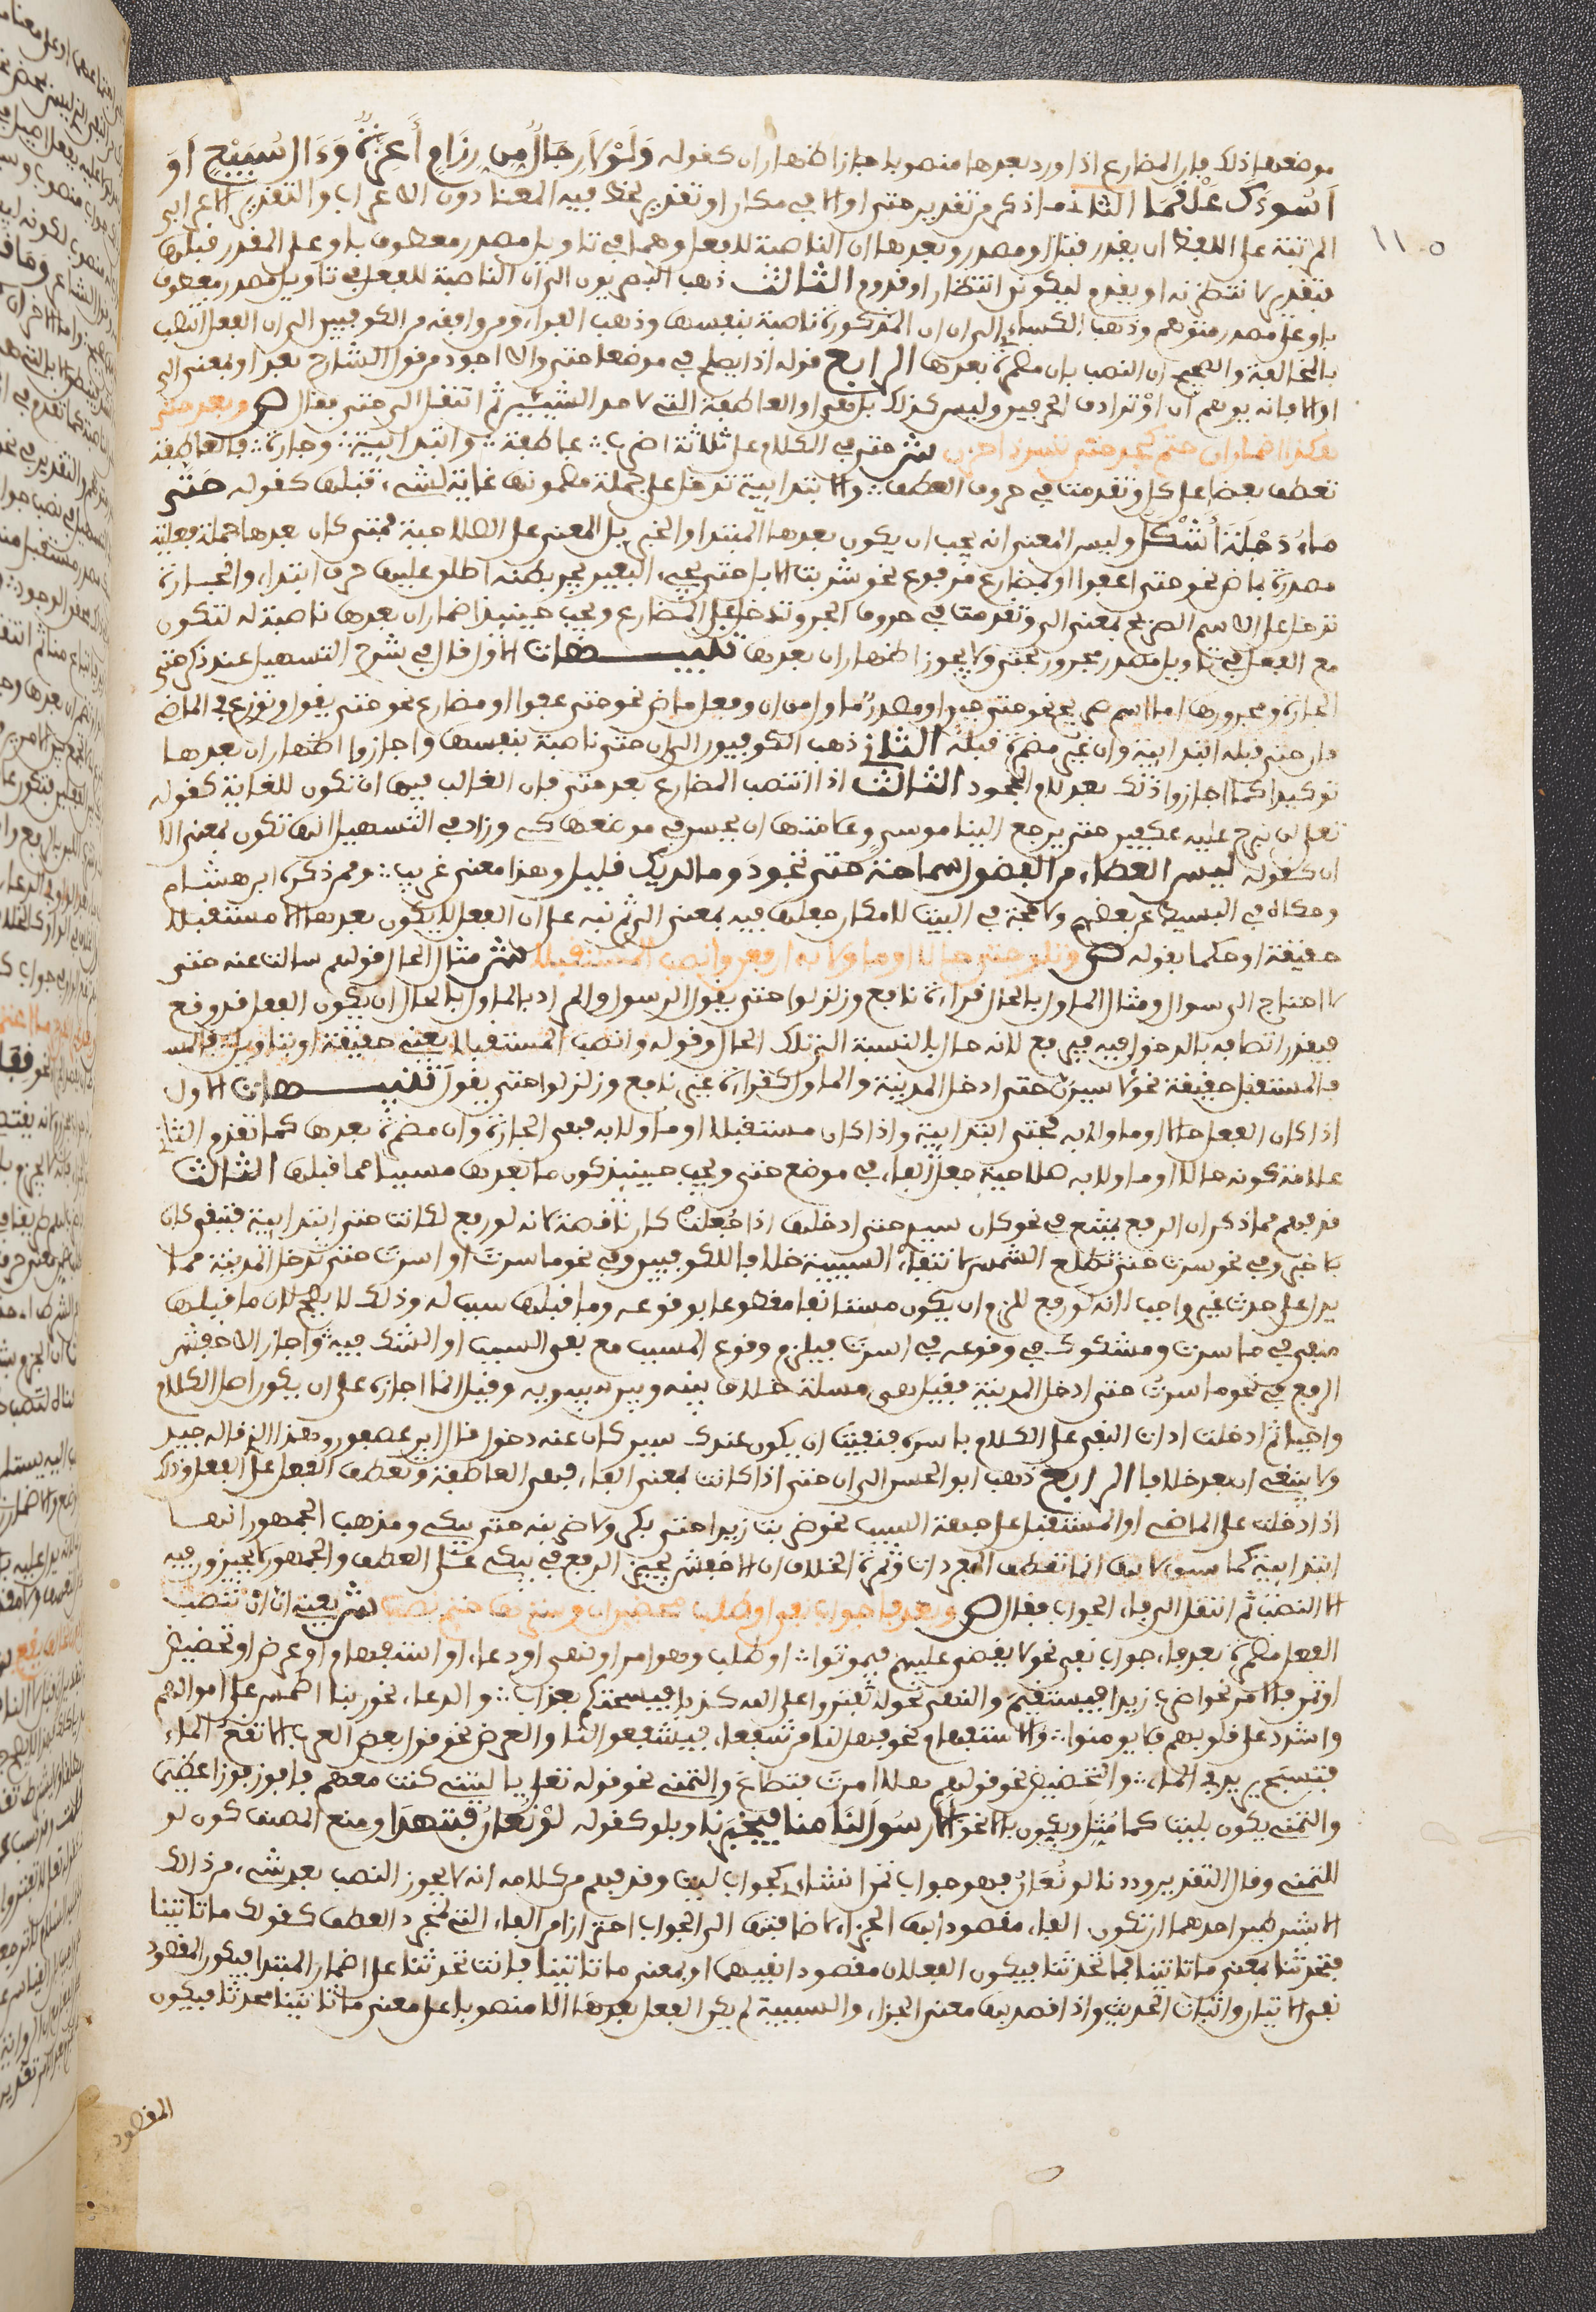 موضعها إذلك فإن المضارع إذا ورد بعدها منصوبا جاز إظهار ان كقوله وَلَوْلَا رِجَالٌ مِن رِزَامٍ أَعِزَّةٌ وَءَالُ سُبَيْعٍ اَوَ
اَسُوءَكَ عَلْقَمَا الثاني ما ذكر من تقدير حتى او الا في مكان او تقدير لحظ فيه المعنا دون الاعراب والتقدير الاعرابي
المرتب على اللفظ ان يقدر قبل او مصدر وبعدها ان الناصبة للفعل وهما في تاويل مصدر معطوف باو على المقدر قبلها
فتقدير لانتظرنه او يقدم ليكونن انتظار او قدوم الثالث ذهب البصريون الى ان ان الناصبة للفعل في تاويل مصدر معطوف
باو على مصدر متوهم وذهب الكسائي الى ان او المذكورة ناصبة بنفسها وذهب الفراء ومن وافقه من الكوفيين الى ان الفعل انتصب
بالمخالفة والصحيح ان النصب بان مضمرة بعدها الرابع قوله اذا يصلح في موضعها حتى والا اجود من قول الشارح بعد او بمعنى الى
او الا فانه يوهم ان اوْ ترادف الحرفين وليس كذلك بل هي او العاطفة التي لاحد الشيئين ثم انتقل الى حتى فقال ص وبعد حتى
هكذا اضمار ان حتم كجد حتى تسر ذا حزن ش حتى في الكلام على ثلاثة اضرب ∴ عاطفة ∴ وابتدائية ∴ وجارة ∴ فالعاطفة
تعطف بعضا على كل وتقدمت في حروف العطف ∴ والابتدائية تدخل على جملة مضمونها غاية لشيء قبلها كقوله حَتَّى
مَاءُ دَجْلَةَ أَشْكَلُ وليس المعنى انه يجب ان يكون بعدها المبتدا والخبر بل المعنى على الصلاحية فمتى كان بعدها جملة فعلية
مصدرة بماض نحو حتى اعفوا او بمضارع مرفوع نحو شربت الابل حتى يجيء البعير يجر بطنه اطلق عليها حرف ابتداء والجارة
تدخل على الاسم الصريح بمعنى الى وتقدمت في حروف الجر وتدخل على المضارع ويجب حينيذ اضمار ان بعدها ناصبة له لتكون
مع الفعل في تاويل مصدر مجرور بحتى ولا يجوز اظهار ان بعدها تنبيهات الاول قال في شرح التسهيل عند ذكر حتى
الجارة ومجرورها اما اسم صريح نحو حتى حين او مصدر مؤول من ان وفعل ماض نحو حتى عفوا او مضارع نحو حتى يقول ونوزع في الماضي
فان حتى قبله ابتدائية وان غير مضمرة قبلهُ الثاني ذهب الكوفيون الى ان حتى ناصبة بنفسها واجازوا اظهار ان بعدها
توكيدا كما اجازوا ذلك بعد لام الجحود الثالث اذا انتصب المضارع بعد حتى فان الغالب فيها ان تكون للغاية كقوله
تعلى لن نبرح عليه عكفين حتى يرجع الينا موسى وعلامتها ان يحسن في موضعها كي وزاد في التسهيل انها تكون بمعنى الا
ان كقوله ليس العطاء من الفضول سماحة حتى تجود وما لديك قليل وهذا معنى غريب ∴ وممن ذكره ابن هشام
وحكاه في البسيط عن بعضهم ولا حجة في البيت لامكان جعلها فيه بمعنى الى ثم نبه على ان الفعل لا يكون بعدها الا مستقبلا
حقيقة او حكما بقوله ص وتلو حتى حالا او مؤولا به ارفعن وانصب المستقبلا ش مثال الحال قولهم سالت عنه حتى
لا احتاج الى سوال ومثال المؤول بالحال قراءة نافع وزلزلوا حتى يقول الرسول والمراد بالمؤول بالحال ان يكون الفعل قد وقع
فيقدر اتصافه بالدخول فيه فيرفع لانه حال بالنسبة الى تلك الحال وقوله وانصب المستقبلا يعني حقيقة او بتاويل
فالمستقبل حقيقة نحو لا سيرن حتى ادخل المدينة والمؤول كقراءة غير نافع وزلزلوا حتى يقولَ تنبيهات الاول
اذا كان الفعل حالا او مؤولا به فحتى ابتدائية واذا كان مستقبلا او مؤولا به فهي الجارة وان مضمرة بعدها كما تقدم الثاني
علامة كونه حالا او مؤولا به صلاحية جعل الفاء في موضع حتى ويجب حينيذ كون ما بعدها مسببا عما قبلها الثالث
قد فهم مما ذكر ان الرفع يمتنع في نحو كان سيري حتى ادخلها اذا جُعلت كان ناقصة لانه لو رفع لكانت حتى ابتدائية فتبقى كان
بلا خبر وفي نحو سرت حتى تطلع الشمس لانتفاء السببية خلافا للكوفيين وفي نحو ما سرت او اسرت حتى تدخل المدينة مما
يدل على حدث غير واجب لانه لو رفع للزم ان يكون مستانفا مقطوعا بوقوعه وما قبلها سبب له وذلك لا يصح لان ما قبلها
منفي في ما سرت ومشكوك في وقوعه في اسرت فيلزم وقوع المسبب مع نفي السبب او الشك فيه واجاز الاخفش
الرفع في نحو ما سرت حتى ادخل المدينة فقيل هي مسئلة خلاف بينه وبين سيبويه وقيل انما اجازه على ان يكون اصل الكلام
واجبا ثم ادخلت اداة النفي على الكلام باسره فنفيت ان يكون عندك سير كان عنه دخول قال ابن عصفور وهذا الذي قاله جيد
ولا ينبغي ان يعد خلافا الرابع ذهب ابو الحسن الى ان حتى اذا كانت بمعنى الفاء فهي العاطفة وتعطف الفعل على الفعل وذلك
اذا دخلت على الماضي او المستقبل على جهة السبب نحو ضربت زيدا حتى بكى ولاضربنه حتى يبكي ومذهب الجمهور انها
ابتدائية كما سبق لا نها انما تعطف المفردات وثمرة الخلاف ان الاخفش يجيز الرفع في يبكي على العطف والجمهور لا يجيزون فيه
الا النصب ثم انتقل الى فاء الجواب فقال ص وبعد فا جواب نفي او طلب محضين ان وسترها حتم نصب ش يعني ان ان تنصب
الفعل مضمرة بعد فاء جواب نفي نحو لا يقضى عليهم فيموتوا ∴ او طلب وهو امر او نهي او دعاء او استفهام او عرض او تحضيض
او تمن فالامر نحو اضرب زيدا فيستقيمَ والنهي نحو لا تفتروا على الله كذبا فيسحتكم بعذاب ∴ والدعاء نحو ربنا اطمس على اموالهم
واشدد على قلوبهم فلا يومنوا ∴ والاستفهام نحو فهل لنا من شفعاء فيشفعوا لنا والعرض نحو قول بعض العرب الا تقع الماء
فتسبح يريد في الماء ∴ والتحضيض نحو قولهم هلا امرت فتطاع والتمني نحو قوله تعلى يا ليتني كنت معهم فافوز فوزا عظيما
والتمني يكون بليت كما مُثِّل ويكون بالا نحو اَلَا رَسُولَ لَنَا مِنا فَيُخْبِرَنَا وبلو كقوله لوْ نُعَانُ فننهدَا ومنع المصنف كون لو
للتمني وقال التقدير وددنا لو نُعَانُ فهو جواب تمن انشائي كجواب ليت وقد فهم من كلامه انه لا يجوز النصب بعد شيء من ذلك
الا بشرطين احدهما ان تكون الفاء مقصودا بها الجزاء لاضافتها الى الجواب احترازا من الفاء التي لمجرد العطف كقولك ما تاتينا
فتحدثنا بمعنى ما تاتينا فما تحدثنا فيكون الفعلان مقصودا نفيهما او بمعنى ما تاتينا فانت تحدثنا على اضمار المبتدا فيكون المقصود
نفي الاتيان واثبات الحديث واذا قصد بها معنى الجزاء والسببية لم يكن الفعل بعدها الا منصوبا على معنى ما تاتينا محدثا فيكون
المقصود
١١٠